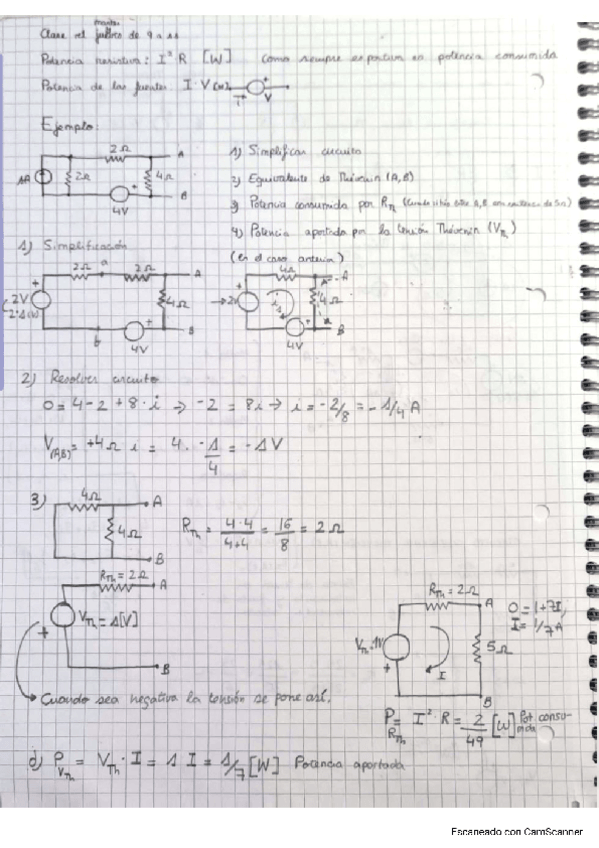 Clase del martes
jueves de 9 a 11
Potencia resistiva: I² R [W] Como siempre es positiva es potencia consumida
Potencia de las fuentes I·V [W] I + V
Ejemplo:
1A 2Ω 2Ω 4Ω 4V + A B
1) Simplificar circuito
2) Equivalente de Thévenin (A,B)
3) Potencia consumida por R_Th
4) Potencia aportada por la tensión Thévenin (V_Th)
(en el caso anterior)
1) Simplificación
+ 2V 2·1(V) 2Ω a 2Ω 4Ω A b 4V + B
+ 2V 4Ω i 4Ω A 4V + B
2) Resolver circuito
0 = 4-2 + 8·i → -2 = 8i → i = -2/8 = -1/4 A
V(AB) = +4Ω i = 4 · -1/4 = -1V
3) 4Ω A 4Ω B
R_Th = 4·4/4+4 = 16/8 = 2Ω
R_Th = 2Ω A
V_Th = 1[V] +
B
R_Th = 2Ω A
V_Th = 1V + I 5Ω B
0 = 1+7I,
I = 1/7 A
Cuando sea negativa la tensión se pone así.
P_R_Th = I²·R = 2/49 [W] Pot. consumida
d) P_V_Th = V_Th · I = 1 I = 1/7 [W] Potencia aportada
Escaneado con CamScanner